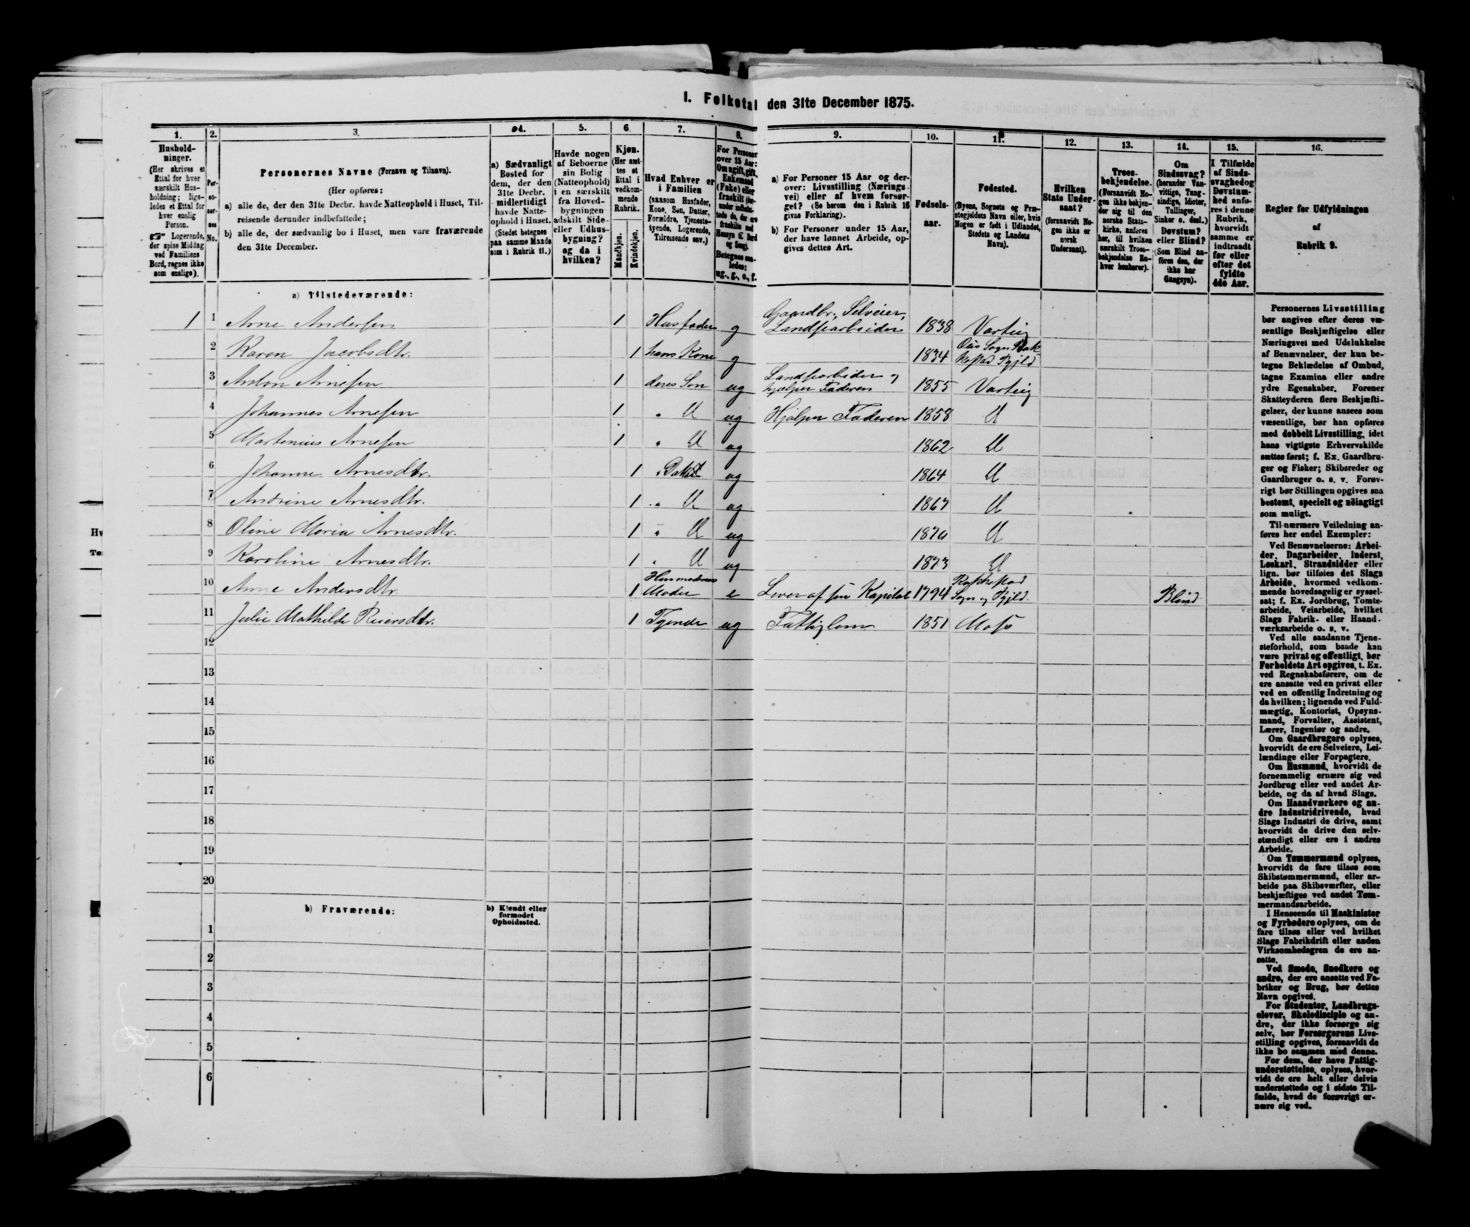 1. Folketal den 31te December 1875.
1.
2.
3.
4.
5.
6.
7.
8.
9.
10.
11.
12.
13.
14.
15.
16.
Hushold-
ninger.
(Her skrives et
Ettal for hver
særskilt Hus-
holdning; lige-
ledes et Ettal for
hver enslig
Person.
☞ Logerende,
der spise Middag
ved Familiens
Bord, regnes ikke
som enslige).
Per-
so-
ner-
nes
No.
Personernes Navne (Fornavn og Tilnavn).
(Her opføres:
a) alle de, der den 31te Decbr. havde Natteophold i Huset, Til-
reisende derunder indbefattede;
b) alle de, der sædvanlig bo i Huset, men vare fraværende
den 31te December.
a) Sædvanligt
Bosted for
dem, der den
31te Decbr.
midlertidigt
havde Natte-
ophold i Huset.
(Stedet betegnes
paa samme Maade
som i Rubrik 11.)
Havde nogen
af Beboerne
sin Bolig
(Natteophold)
i en særskilt
fra Hoved-
bygningen
adskilt Side-
eller Udhus-
bygning?
og da i
hvilken?
Kjøn.
(Her sæt-
tes et
Ettal i
vedkom-
mende
Rubrik.
Mandkjøn.
Kvindekjøn.
Hvad Enhver er
i Familien
(saasom Husfader,
Kone, Søn, Datter,
Forældre, Tjeneste-
tyende, Logerende,
Tilreisende osv.)
For Personer
over 15 Aar:
Om ugift, gift,
Enkemand
(Enke) eller
fraskilt
Betegnes saa-
ledes:
ug., g., e., f.
a) For Personer 15 Aar og der-
over: Livsstilling (Nærings-
vei) eller af hvem forsør-
get? (Se herom den i Rubrik 16
givne Forklaring).
b) For Personer under 15 Aar,
der have lønnet Arbeide, op-
gives dettes Art.
Fødsels-
aar.
Fødested.
(Byens, Sognets og Præ-
stegjeldets Navn eller, hvis
Nogen er født i Udlandet,
Stedets og Landets
Navn).
Hvilken
Stats Under-
saat?
(forsaavidt No-
gen ikke er
norsk
Undersaat).
Troes-
bekjendelse.
(Forsaavidt No-
gen ikke bekjen-
der sig til den
norske Stats-
kirke, anføres
her, til hvilken
særskilt Troes-
bekjendelse En-
hver henhører).
Om
Sindssvag?
(herunder Van-
vittige, Tung-
sindige, Idioter,
Tullinger,
Sinker o. desl.)
Døvstum?
eller Blind?
(Som Blind an-
føres den, der
ikke har
Gangsyn).
I Tilfælde
af Sinds-
svaghed og
Døvstum-
hed anfø-
res i denne
Rubrik,
hvorvidt
samme er
indtraadt
før eller
efter det
fyldte
4de Aar.
Regler for Udfyldningen
af
Rubrik 9.
a) Tilstedeværende:
1 1 Arne Andersen 1 Husfader g Gaardbr., Selveier, Landsearbeider 1838 Varteig
2 Karen Jacobsdtr. 1 hans Kone g 1834
3 Anton Arnesen 1 deres Søn ug Hjelper Faderen 1855 Varteig
4 Johannes Arnesen 1 " U ug Hjælper Faderen 1858 U
5 Martinius Arnesen 1 " U ug 1862 U
6 Johanne Arnesdtr. 1 " Datter ug 1864 U
7 Andrine Arnesdtr. 1 " U ug 1867 U
8 Oline Maria Arnesdtr. 1 " U ug 1870 U
9 Karoline Arnesdtr. 1 " U ug 1873 U
10 Anne Andersdtr. 1 Moder e Lever af sin Kapital 1794 Sogn og Pgjld. Blind
11 Julie Mathilde 1 Tjener ug Fattiglem 1851 Moss
12
13
14
15
16
17
18
19
20
b) Fraværende:
b) Kjendt eller
formodet
Opholdssted.
1
2
3
4
5
6
Personernes Livsstilling
bør angives efter deres væ-
sentlige Beskjæftigelse eller
Næringsvei med Udelukkelse
af Benævnelser, der kun be-
tegne Beklædelse af Ombud,
tagne Examina eller andre
ydre Egenskaber. Forener
Skatteyderen flere Beskjæfti-
gelser, der kunne ansees som
væsentlige, bør han opføres
med dobbelt Livsstilling, idet
hans vigtigste Erhvervskilde
sættes først; f. Ex. Gaardbru-
ger og Fisker; Skibsreder og
Gaardbruger o. s. v. Forøv-
rigt bør Stillingen opgives saa
bestemt, specielt og nøiagtigt
som muligt.
Til nærmere Veiledning an-
føres her endel Exempler:
Ved Benævnelserne: Arbei-
der, Dagarbeider, Inderst,
Løskarl, Strandsidder eller
lign. bør tilføies det Slags
Arbeide, hvormed vedkom-
mende hovedsagelig er syssel-
sat; f. Ex. Jordbrug, Tomte-
arbeide, Veiarbeide, hvilket
Slags Fabrik- eller Haand-
værksarbeide o. s. v.
Ved alle saadanne Tjene-
steforhold, som baade kan
være privat og offentligt, bør
Forholdets Art opgives, t. Ex.
ved Regnskabsførere, om de
ere ansatte ved en privat eller
ved en offentlig Indretning og
da hvilken; lignende ved Fuld-
mægtig, Kontorist, Opsyns-
mand, Forvalter, Assistent,
Lærer, Ingeniør og andre.
Om Gaardbrugere oplyses,
hvorvidt de ere Selveiere, Lei-
lændinge eller Forpagtere.
Om Husmænd, hvorvidt de
fornemmelig ernære sig ved
Jordbrug eller ved andet Ar-
beide, og da af hvad Slags.
Om Haandværkere og an-
dre Industridrivende, hvad
Slags Industri de drive, samt
hvorvidt de drive den selv-
stændigt eller ere i andres
Arbeide.
Om Tømmermænd oplyses,
hvorvidt de fare tilsøs som
Skibstømmermænd, eller ar-
beide paa Skibsværfter, eller
beskjæftiges ved andet Tøm-
mermandsarbeide.
I Henseende til Maskinister
og Fyrbødere oplyses, om de
fare tilsøs eller ved hvilket
Slags Fabrikdrift eller anden
Virksomhedsgren de ere an-
satte.
Ved Smede, Snedkere og
andre, der ere ansatte ved Fa-
briker og Brug, bør dettes
Navn opgives.
For Studenter, Landbrugs-
elever, Skoledisciple og an-
dre, der ikke forsørge sig
selv, bør Forsørgerens Livs-
stilling opgives, forsaavidt de
ikke bo sammen med denne.
For dem, der have Fattig-
understøttelse, oplyses, hvor-
vidt de ere helt eller delvis
understøttede og i sidste Til-
fælde, hvad de forøvrigt er-
nære sig ved.